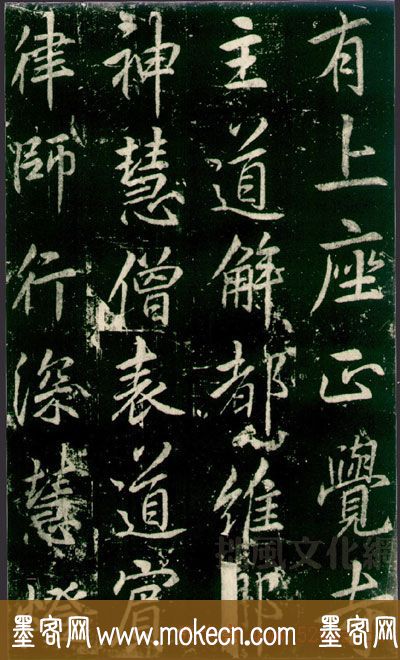 有上座正覺
主道解都維那
神慧僧表道
律師行深慧
風文化網
墨客网 www.mokecn.com 墨客网